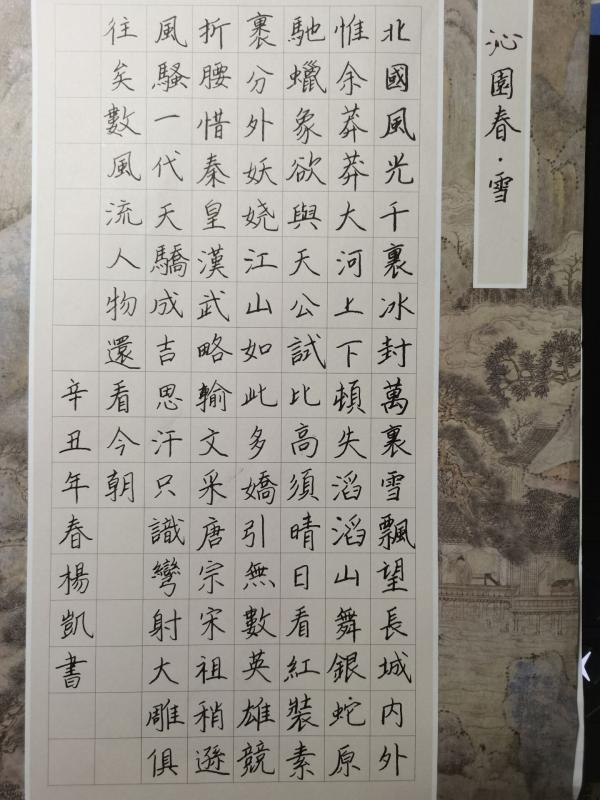 沁園春·雪
北國風光千裏冰封萬裏雪飄望長城内外
惟余莽莽大河上下頓失滔滔山舞銀蛇原
馳蠟象欲與天公試比高須晴日看紅裝素
裹分外妖娆江山如此多嬌引無數英雄競
折腰惜秦皇漢武略輸文采唐宗宋祖稍遜
風騷一代天驕成吉思汗只識彎射大雕俱
往矣數風流人物還看今朝
辛丑年春楊凱書